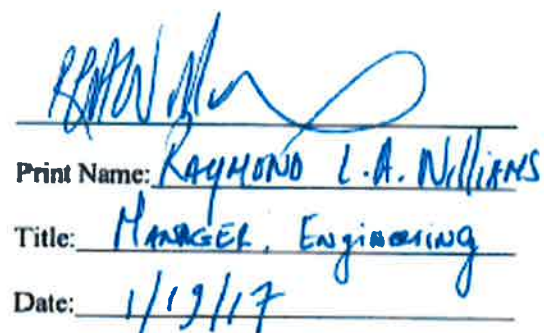 Print Name: Raymond L.A. Williams
Title: Manager, Engineering
Date: 1/19/17